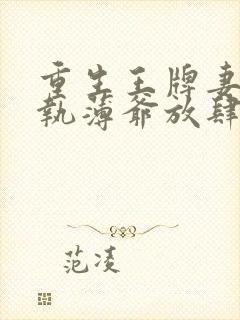 重生王牌妻
執薄爺放肆
范凌